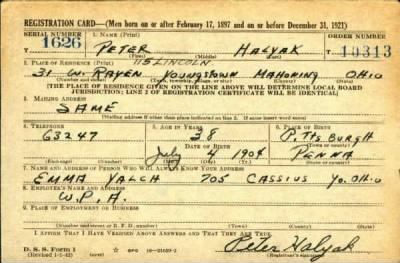 REGISTRATION CARD—(Men born on or after February 17, 1897 and on or before December 31, 1921)
SERIAL NUMBER 1. NAME (Print) ORDER NUMBER
1626 PETER HALYAK 10313
(First) (Middle) (Last)
2. PLACE OF RESIDENCE (Print) 115 LINCOLN
31 W. RAYEN YOUNGSTOWN MAHONING OHIO
(Number and street) (Town, township, village, or city) (County) (State)
[THE PLACE OF RESIDENCE GIVEN ON THE LINE ABOVE WILL DETERMINE LOCAL BOARD
JURISDICTION; LINE 2 OF REGISTRATION CERTIFICATE WILL BE IDENTICAL]
3. MAILING ADDRESS
SAME
[Mailing address if other than place indicated on line 2. If same insert word same]
4. TELEPHONE 5. AGE IN YEARS 6. PLACE OF BIRTH
63247 38 PITTSBURGH
DATE OF BIRTH (Town or county)
July 4 1904 PENNA
(Mo.) (Day) (Yr.) (State or country)
7. NAME AND ADDRESS OF PERSON WHO WILL ALWAYS KNOW YOUR ADDRESS
EMMA 705 CASSIUS Yo. OHIO
8. EMPLOYER'S NAME AND ADDRESS
W.P.A.
9. PLACE OF EMPLOYMENT OR BUSINESS
(Number and street or R. F. D. number) (Town) (County) (State)
I AFFIRM THAT I HAVE VERIFIED ABOVE ANSWERS AND THAT THEY ARE TRUE.
D. S. S. Form 1
(Revised 1-1-42) GPO Peter Halyak